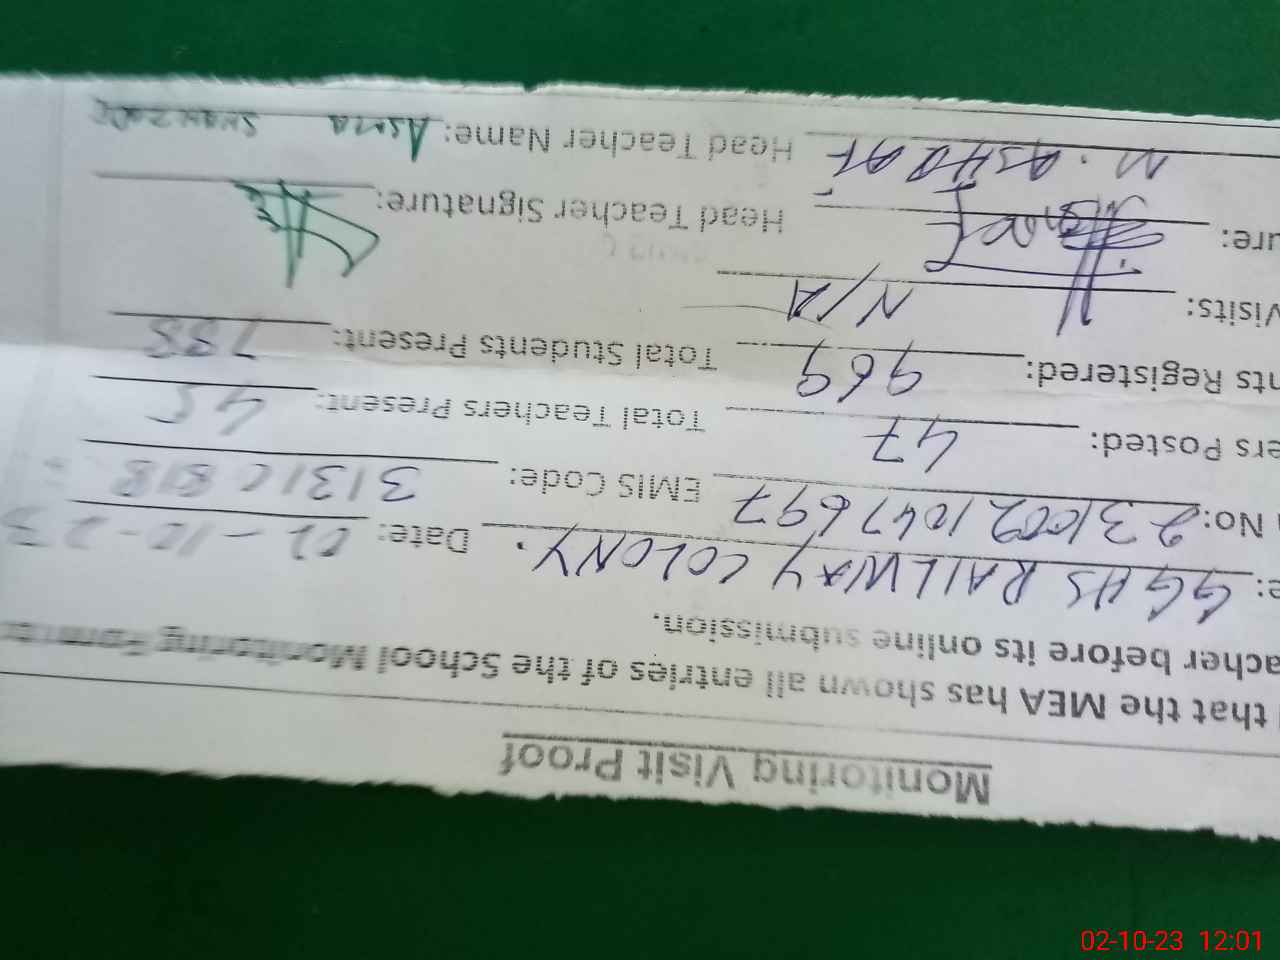 Monitoring Visit Proof
that the MEA has shown all entries of the School Monitoring
acher before its online submission.
e: GGHS RAILWAY COLONY. Date: 02-10-23
No: 2310021047697 EMIS Code: 31310818
ers Posted: 47 Total Teachers Present: 45
nts Registered: 969 Total Students Present:
Visits: N/A
ure: Head Teacher Signature:
M. ASHRAF Head Teacher Name: Asma
02-10-23 12:01